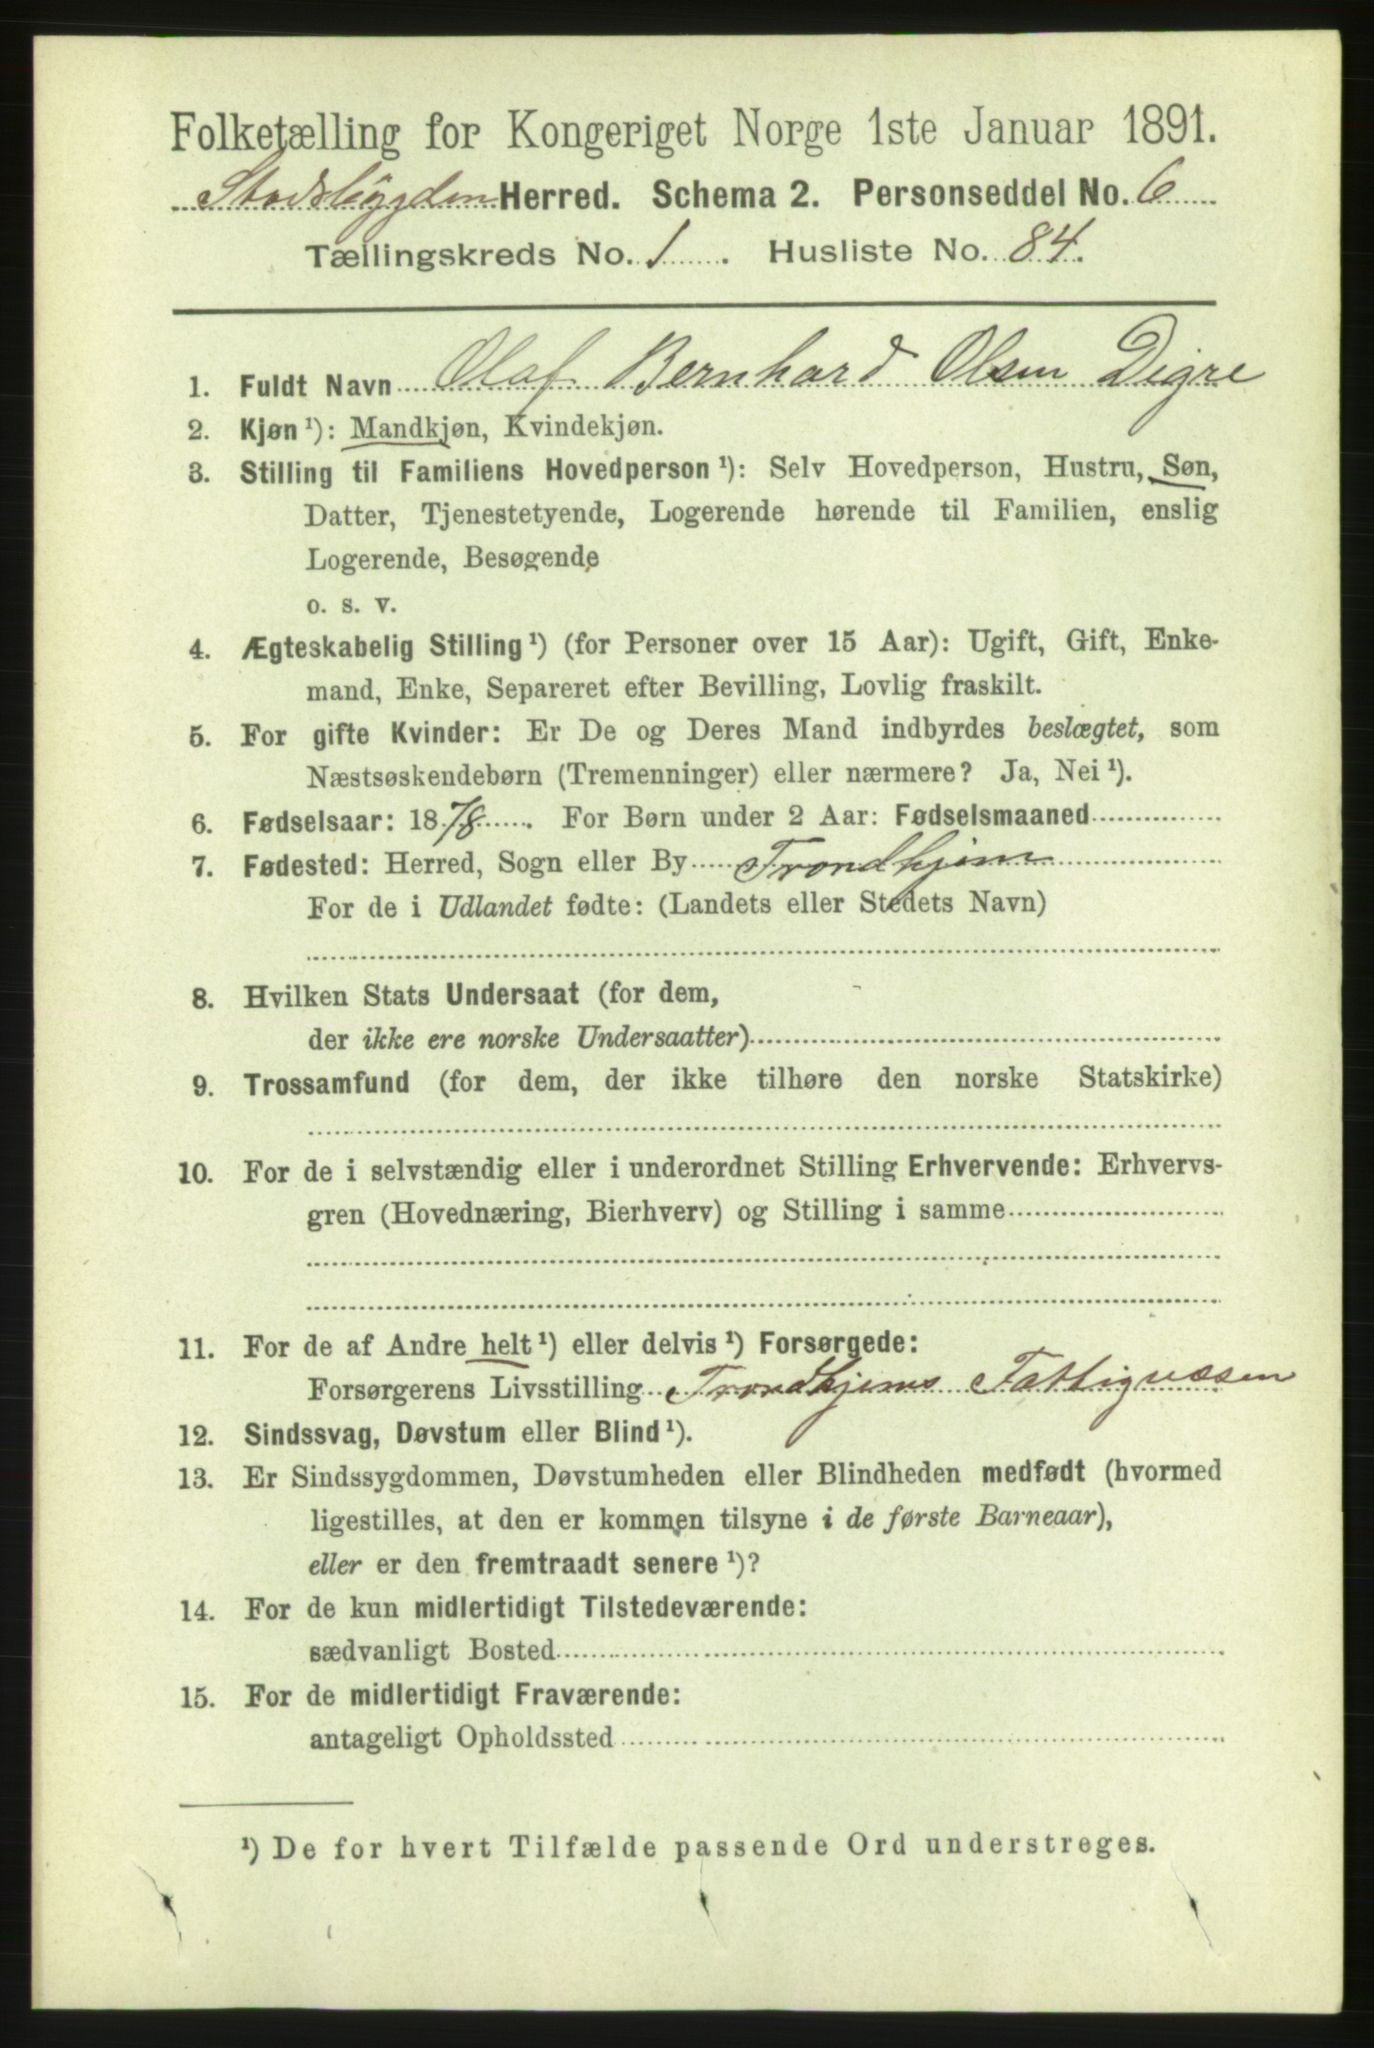 Folketælling for Kongeriget Norge 1ste Januar 1891.
Stadsbygden Herred. Schema 2. Personseddel No. 6
Tællingskreds No. 1. Husliste No. 84.
1. Fuldt Navn Olaf Bernhard Olsen Digre
2. Kjøn ¹): Mandkjøn, Kvindekjøn.
3. Stilling til Familiens Hovedperson ¹): Selv Hovedperson, Hustru, Søn,
Datter, Tjenestetyende, Logerende hørende til Familien, enslig
Logerende, Besøgende
o. s. v.
4. Ægteskabelig Stilling ¹) (for Personer over 15 Aar): Ugift, Gift, Enke-
mand, Enke, Separeret efter Bevilling, Lovlig fraskilt.
5. For gifte Kvinder: Er De og Deres Mand indbyrdes beslægtet, som
Næstsøskendebørn (Tremenninger) eller nærmere? Ja, Nei ¹).
6. Fødselsaar: 1878. For Børn under 2 Aar: Fødselsmaaned
7. Fødested: Herred, Sogn eller By Trondhjem
For de i Udlandet fødte: (Landets eller Stedets Navn)
8. Hvilken Stats Undersaat (for dem,
der ikke ere norske Undersaatter)
9. Trossamfund (for dem, der ikke tilhøre den norske Statskirke)
10. For de i selvstændig eller i underordnet Stilling Erhvervende: Erhvervs-
gren (Hovednæring, Bierhverv) og Stilling i samme
11. For de af Andre helt ¹) eller delvis ¹) Forsørgede:
Forsørgerens Livsstilling Trondhjems Fattigvæsen
12. Sindssvag, Døvstum eller Blind ¹).
13. Er Sindssygdommen, Døvstumheden eller Blindheden medfødt (hvormed
ligestilles, at den er kommen tilsyne i de første Barneaar),
eller er den fremtraadt senere ¹)?
14. For de kun midlertidigt Tilstedeværende:
sædvanligt Bosted
15. For de midlertidigt Fraværende:
antageligt Opholdssted
¹) De for hvert Tilfælde passende Ord understreges.